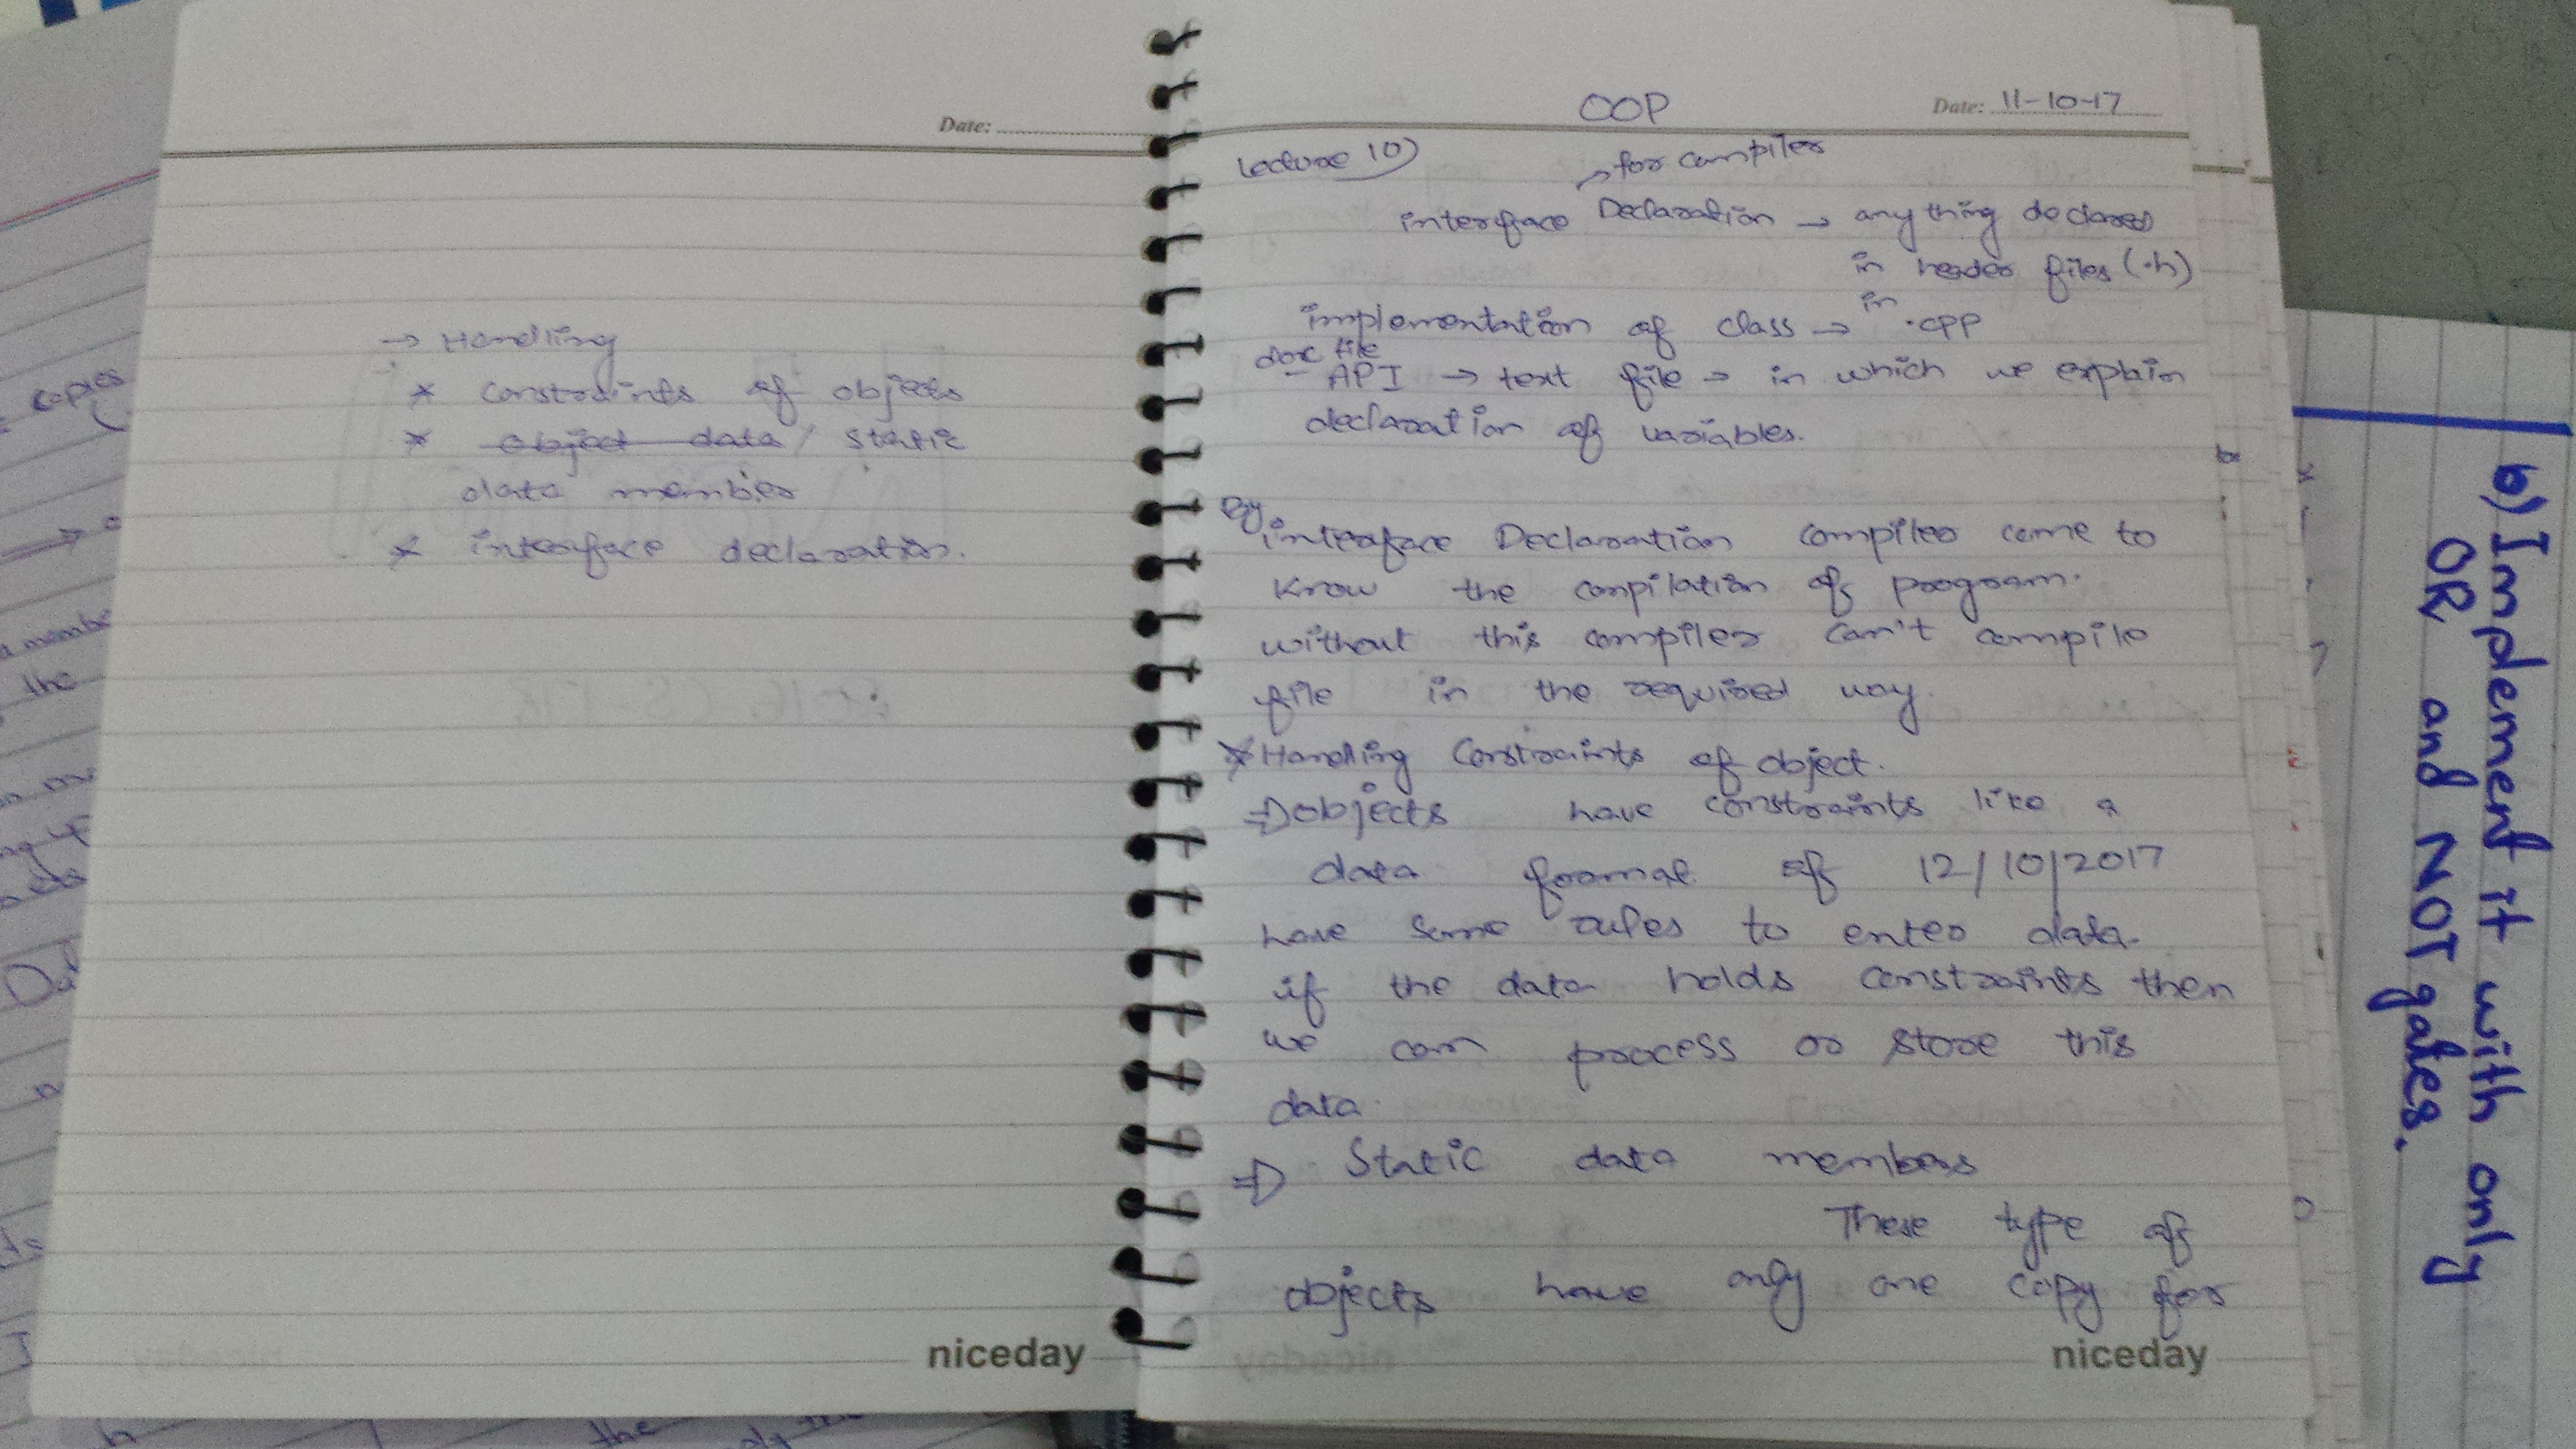 Date:
→ Handling
* constraints of objects
* object data / static
data member
* interface declaration.
niceday
OOP
Date: 11-10-17
Lecture 10)
for compiler
interface Declaration → anything declared
in header files (.h)
implementation of class → in .cpp
doc file
API → text file → in which we explain
declaration of variables.
By
interface Declaration compiler came to
know the compilation of program.
without this compiler can't compile
file in the required way.
* Handling Constraints of object.
⇒ objects have constraints like a
data format of 12/10/2017
have some rules to enter data.
if the data holds constraints then
we can process or store this
data.
⇒ Static data members
These type of
objects have only one copy for
niceday
b) Implement it with only
OR and NOT gates.
copies
the
the